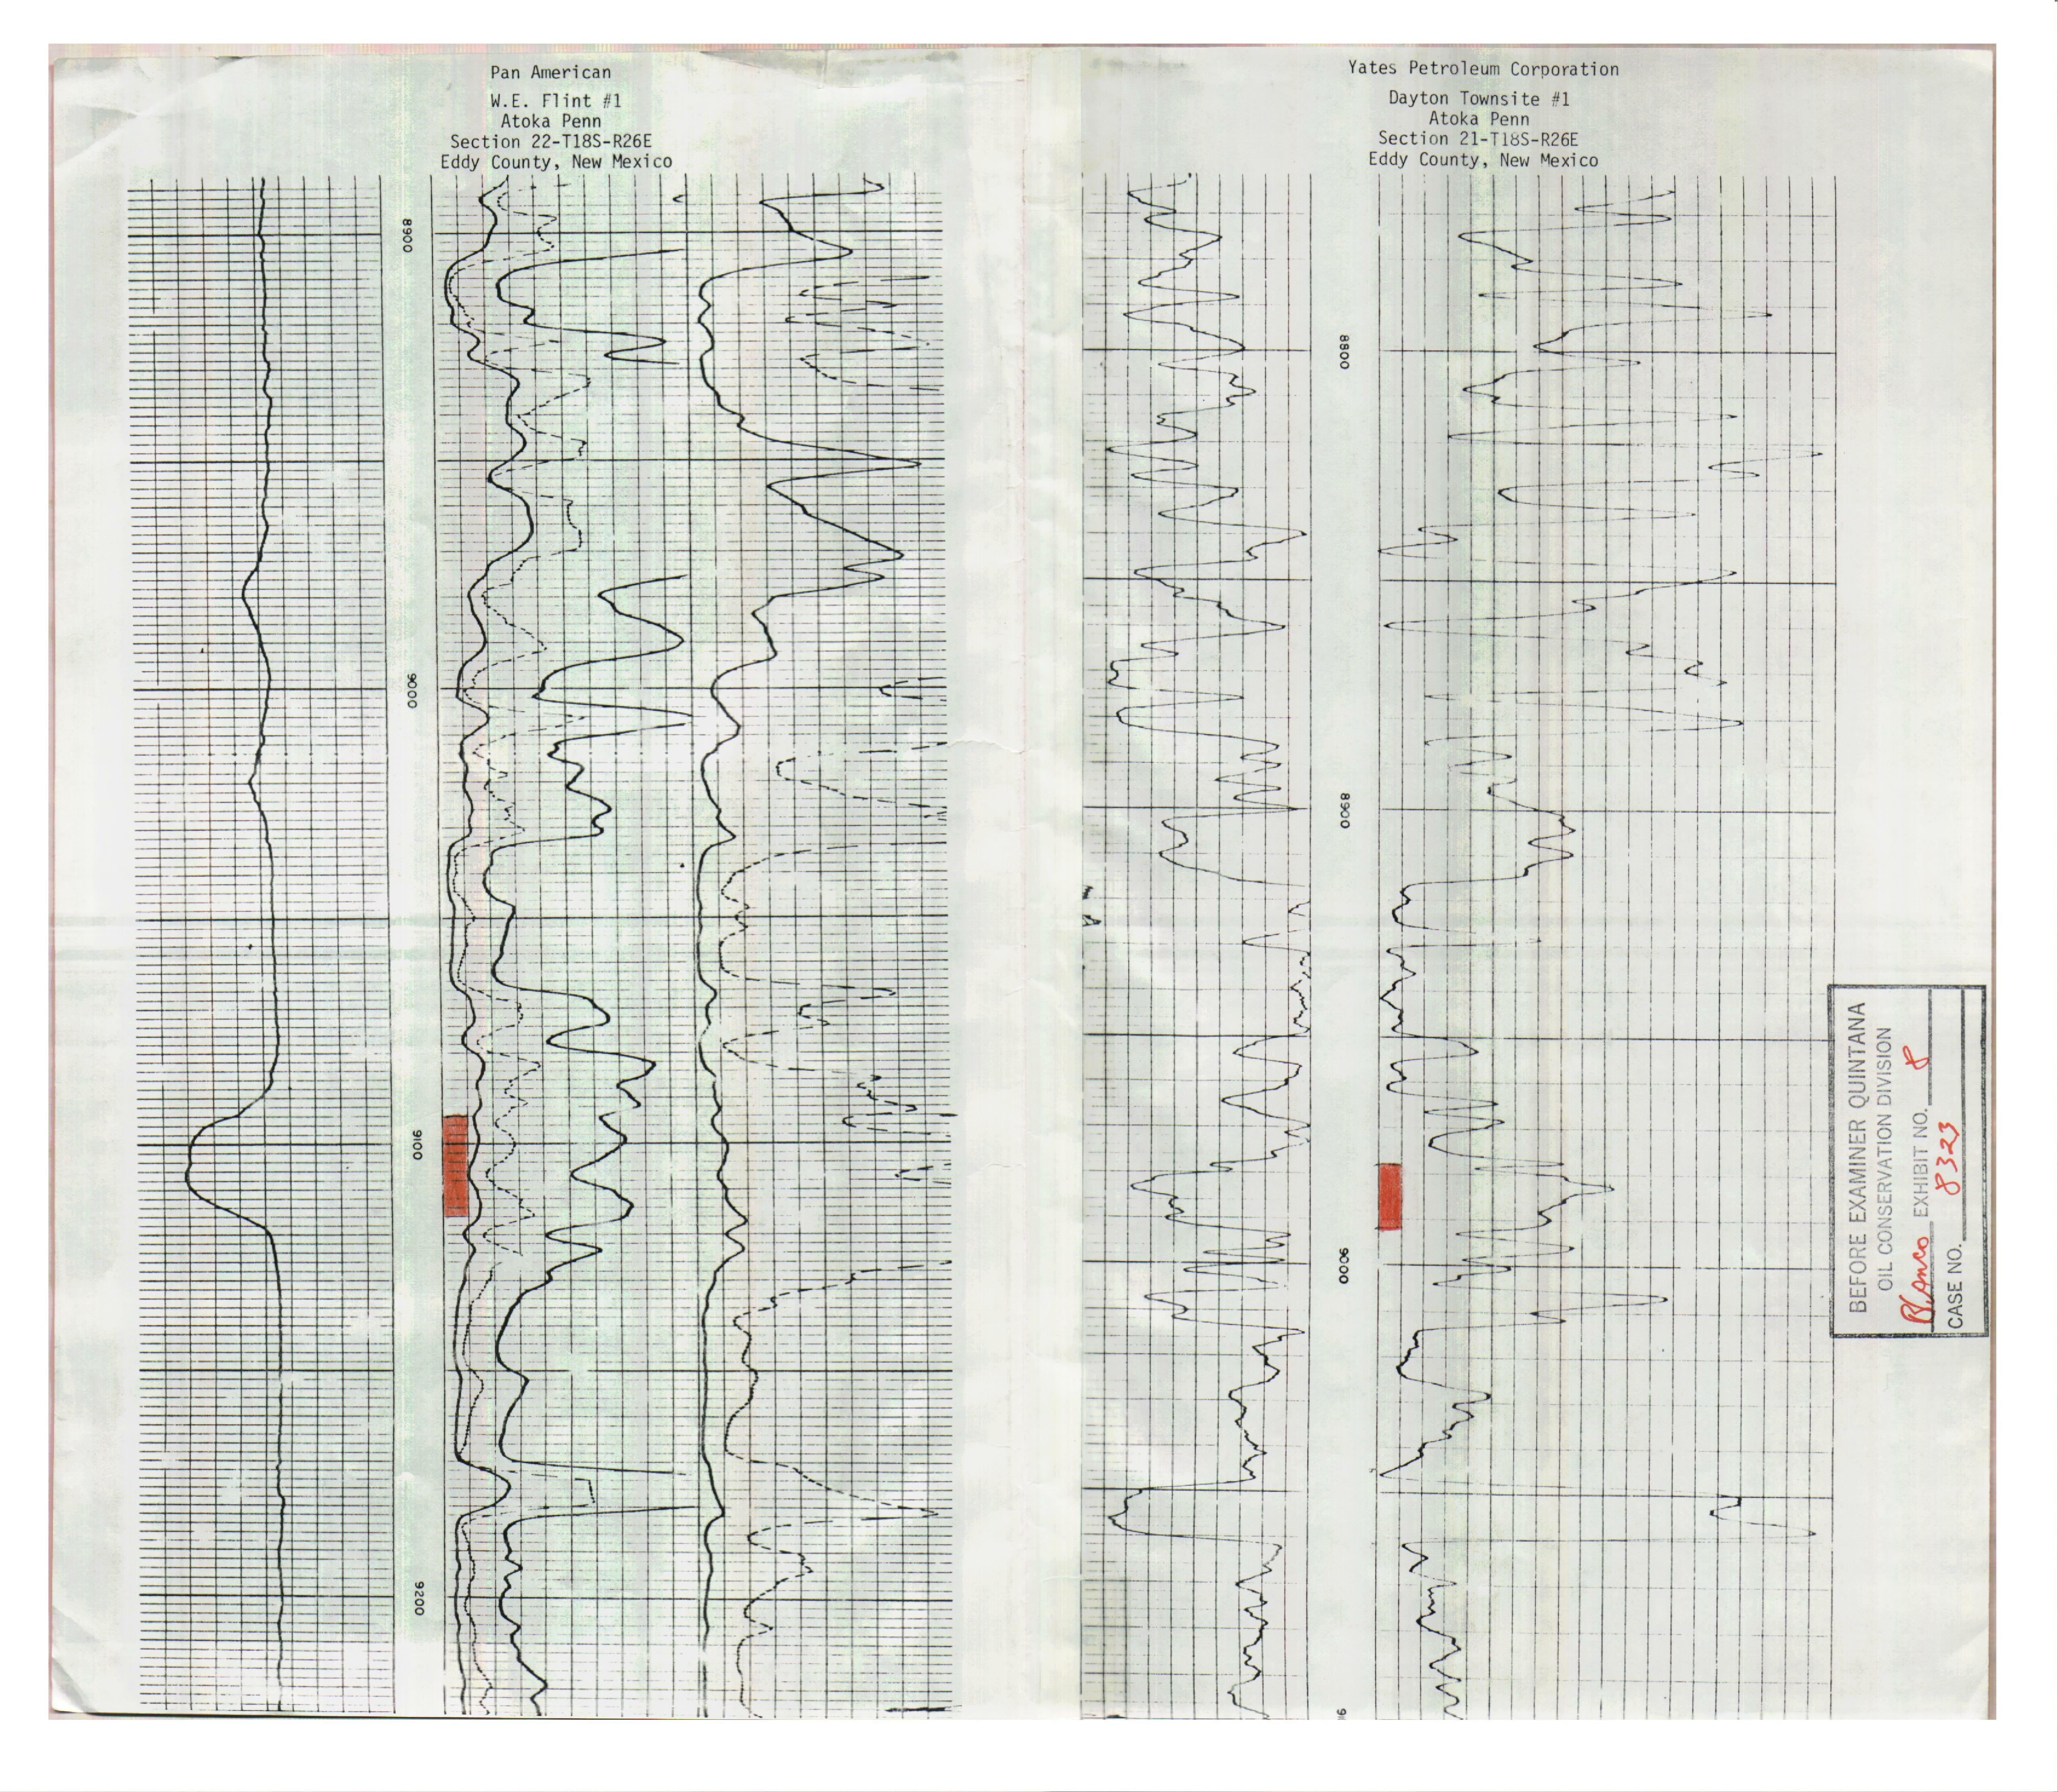 Pan American
W.E. Flint #1
Atoka Penn
Section 22-T18S-R26E
Eddy County, New Mexico
8900
9000
9100
9200
Yates Petroleum Corporation
Dayton Townsite #1
Atoka Penn
Section 21-T18S-R26E
Eddy County, New Mexico
8800
8900
9000
BEFORE EXAMINER QUINTANA
OIL CONSERVATION DIVISION
Blanco EXHIBIT NO. 8
CASE NO. 8323